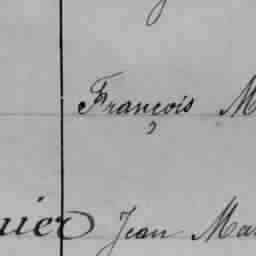 François M
nier Jean Mar